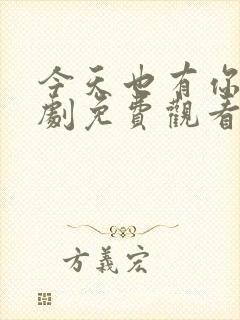 今天也有你
劇免費觀看
方義宏